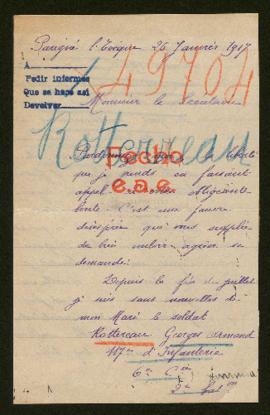 Parigné l'Evêque 26 Janvier 1917
A
Pedir informes
Que se haga asi
Devolver
49704
Monsieur le Secrétaire
Rottereau
Pardonnez la liberté
que je prends en faisant
appel à votre obligeante
bonté. C'est une pauvre
désespérée qui vous supplie
de bien vouloir agréer sa
demande:
Fecho
Depuis la fin de juillet
je suis sans nouvelles de
mon Mari le soldat
Rottereau Georges Armand
117e d'Infanterie
6e Cie
2e Bat